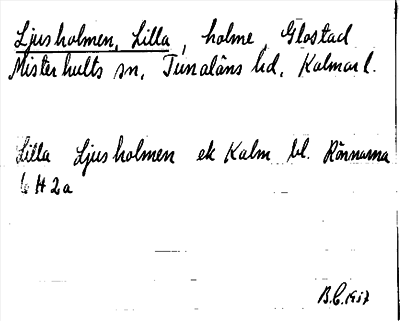 Ljusholmen, Lilla, holme, Glostad
Misterhults sn, Tunaläns hd, Kalmar l.
Lilla Ljusholmen ek Kalm bl. Rönnarna
6 H 2a
B.C. 1937